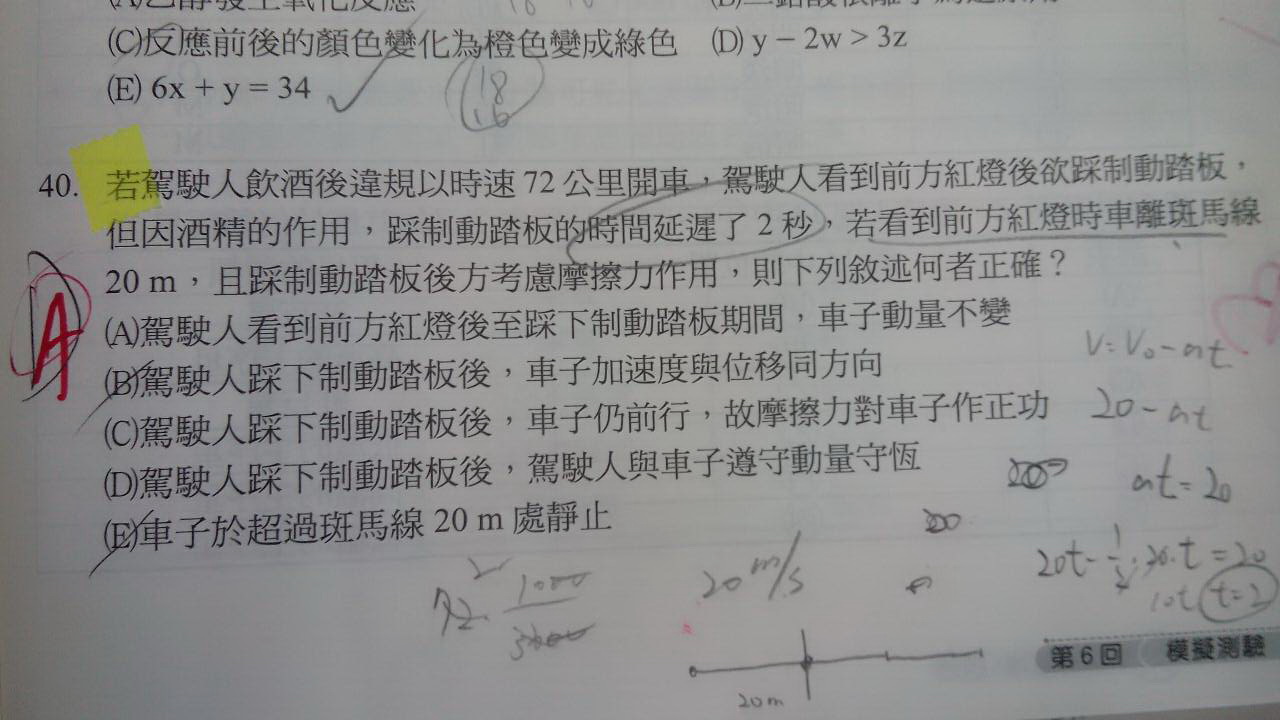 (C)反應前後的顏色變化為橙色變成綠色 (D) y − 2w > 3z
(E) 6x + y = 34
18
16
40. 若駕駛人飲酒後違規以時速 72 公里開車，駕駛人看到前方紅燈後欲踩制動踏板，
但因酒精的作用，踩制動踏板的時間延遲了 2 秒，若看到前方紅燈時車離斑馬線
20 m，且踩制動踏板後方考慮摩擦力作用，則下列敘述何者正確？
A
(A)駕駛人看到前方紅燈後至踩下制動踏板期間，車子動量不變
(B)駕駛人踩下制動踏板後，車子加速度與位移同方向
(C)駕駛人踩下制動踏板後，車子仍前行，故摩擦力對車子作正功
(D)駕駛人踩下制動踏板後，駕駛人與車子遵守動量守恆
(E)車子於超過斑馬線 20 m 處靜止
V = V₀ − at
20 − at
at = 20
20 m/s
t = 2
20 m
第 6 回 模擬測驗